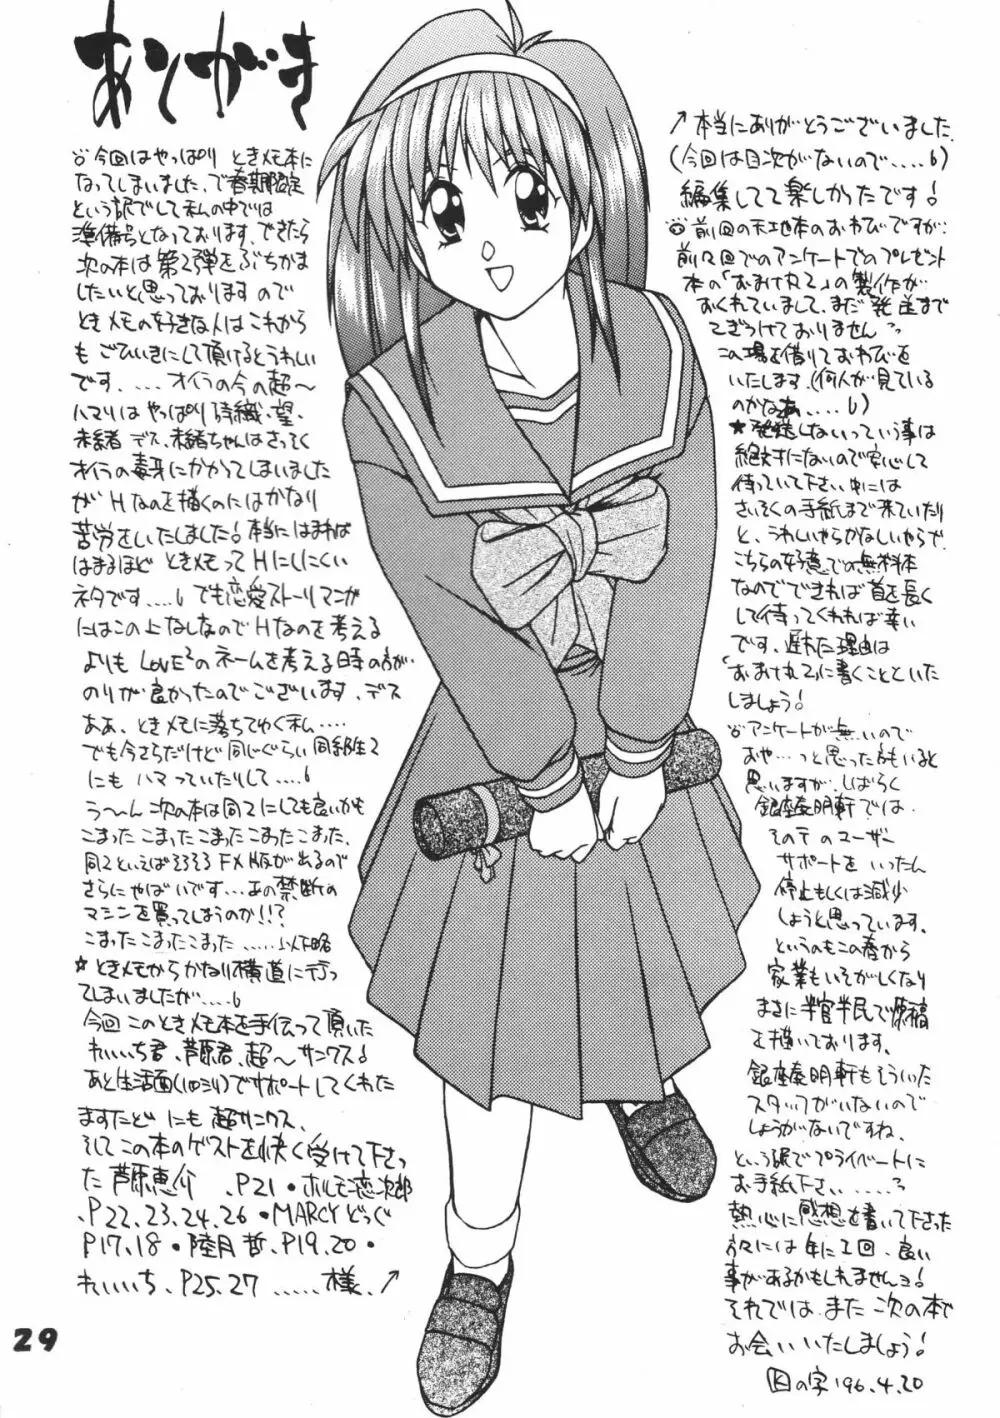 あとがき
今回はやっぱり ときメモ本に
なってしまいました、で春期限定
という訳でして私の中では
準備号となっております、できたら
次の本は第2弾をぶちかま
したいと思っておりますので
ときメモの好きな人はこれから
もごひいきにして頂けるとうれしい
です、....オイラの今の超〜
ハマリはやっぱり詩織、望、
未緒デス、未緒ちゃんはさっそく
オイラの毒牙にかかってしまいました
がHなのを描くのにはかなり
苦労をいたしました!本当にはまれば
はまるほどときメモってHにしにくい
ネタです....でも恋愛ストーリーマンガ
にはこの上なしなのでHなのを考える
よりもLOVE²のネームを考える時の方が
のりが良かったのでございます、デス
ああ、ときメモに落ちてゆく私....
でも今さらだけど同じぐらい同級生2
にもハマっていたりして....
う〜ん次の本は同2にしても良いかも
こまったこまったこまったこまったこまった、
同2といえばそろそろFX版が出るので
さらにやばいです...あの禁断の
マシンを買ってしまうのか!!?
こまったこまったこまった.....以下略
★ときメモからかなり横道に行っ
てしまいましたが....
今回このときメモ本を手伝って頂いた
れいいち君、芦原君、超〜サンクス!
あと生活面(いゅう)でサポートしてくれた
ますたどにも超サンクス、
そしてこの本のゲストを快く受けて下さっ
た芦原恵介、P21・ホルモン恋次郎
、P22.23.24.26・MARCYどっぐ
P17.18・陸月哲、P19.20・
れいいち、P25.27.....様、↗
↗本当にありがとうございました、
(今回は目次がないので....)
編集してて楽しかったです!
前回の天地本のおわびですが..
前々回でのアンケートでのプレゼント
本の「おまけ丸2」の製作が
おくれていまして、まだ発送まで
こぎつけておりません
この場を借りておわびを
いたします、(何人が見ている
のかなぁ....)
★発送しないっていう事は
絶対にないので安心して
待っていて下さい、中には
さいそくの手紙まで来ていたり
と、うれしいやらかなしいやらで、
こちらの好意での無料本
なのでできれば首を長く
して待ってくれれば幸い
です、遅れた理由は
「おまけ丸2」に書くことといた
しましょう!
アンケートが無いので
おや...っと思った方もいると
思いますが、しばらく
銀座泰明軒では、
そのテのユーザー
サポートをいったん
停止もしくは減少
しようと思っています、
というのもこの春から
家業もいそがしくなり
まさに半官半民で原稿
を描いております、
銀座泰明軒もそういった
スタッフがいないので
しょうがないですね、
という訳でプライベートに
お手紙下さい.....?
熱心に感想を書いて下さった
方々には年に1回、良い
事があるかもしれませんョ!
それでは、また次の本で
お会いいたしましょう!
'96.4.20
29